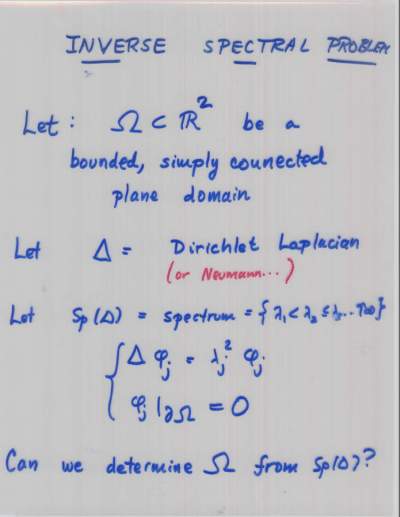 INVERSE SPECTRAL PROBLEM
Let : Ω ⊂ ℝ² be a
bounded, simply connected
plane domain
Let Δ = Dirichlet Laplacian
(or Neumann...)
Let Sp(Δ) = spectrum = {λ₁ < λ₂ ≤ λ₃...↑∞}
Δ φⱼ = λⱼ² φⱼ
φⱼ |∂Ω = 0
Can we determine Ω from Sp(Δ)?